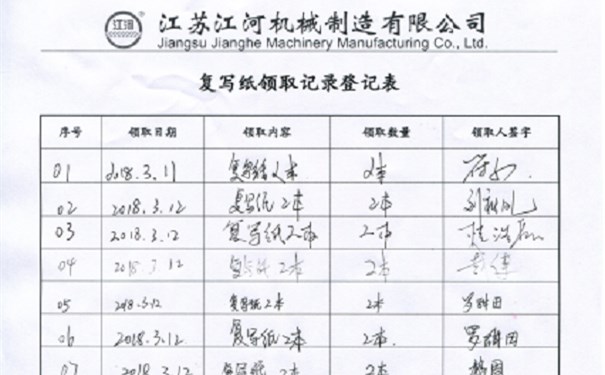 江河
江苏江河机械制造有限公司
Jiangsu Jianghe Machinery Manufacturing Co., Ltd.
复写纸领取记录登记表
序号 领取日期 领取内容 领取数量 领取人签字
01 2018.3.11 复写纸2本 2本
02 2018.3.12 复写纸2本 2本
03 2018.3.12 复写纸2本 2本
04 2018.3.12 复写纸2本 2本
05 2018.3.12 复写纸2本 2本
06 2018.3.12 复写纸2本 2本.
07 2018.3.12 复写纸2本 2本